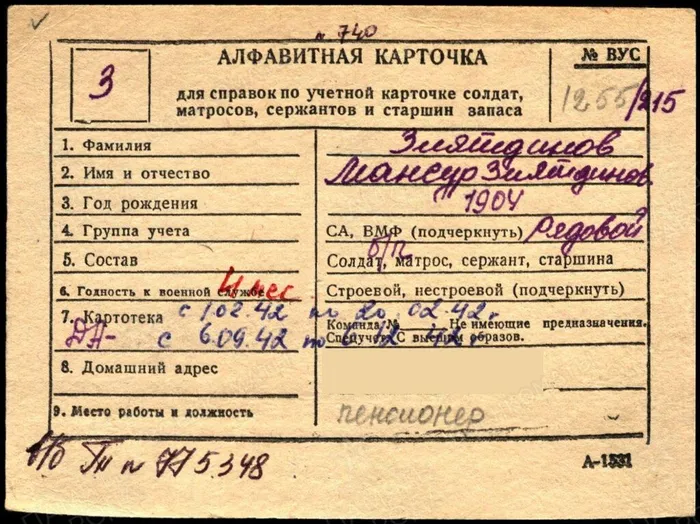 п 740
АЛФАВИТНАЯ КАРТОЧКА
№ ВУС
З
для справок по учетной карточке солдат,
матросов, сержантов и старшин запаса
1255/215
1. Фамилия Зиятдинов
2. Имя и отчество Мансур Зиятдинов.
3. Год рождения 1904
4. Группа учета СА, ВМФ (подчеркнуть) Рядовой
5. Состав б/п Солдат, матрос, сержант, старшина
6. Годность к военной службе 4 мес Строевой, нестроевой (подчеркнуть)
7. Картотека с 1.02.42 по 20.02.42г. Команда № Не имеющие предназначения.
ДА- с 6.09.42 по 12 42г. Спецучет С высшим образов.
8. Домашний адрес
9. Место работы и должность пенсионер
п 775348
А-1531